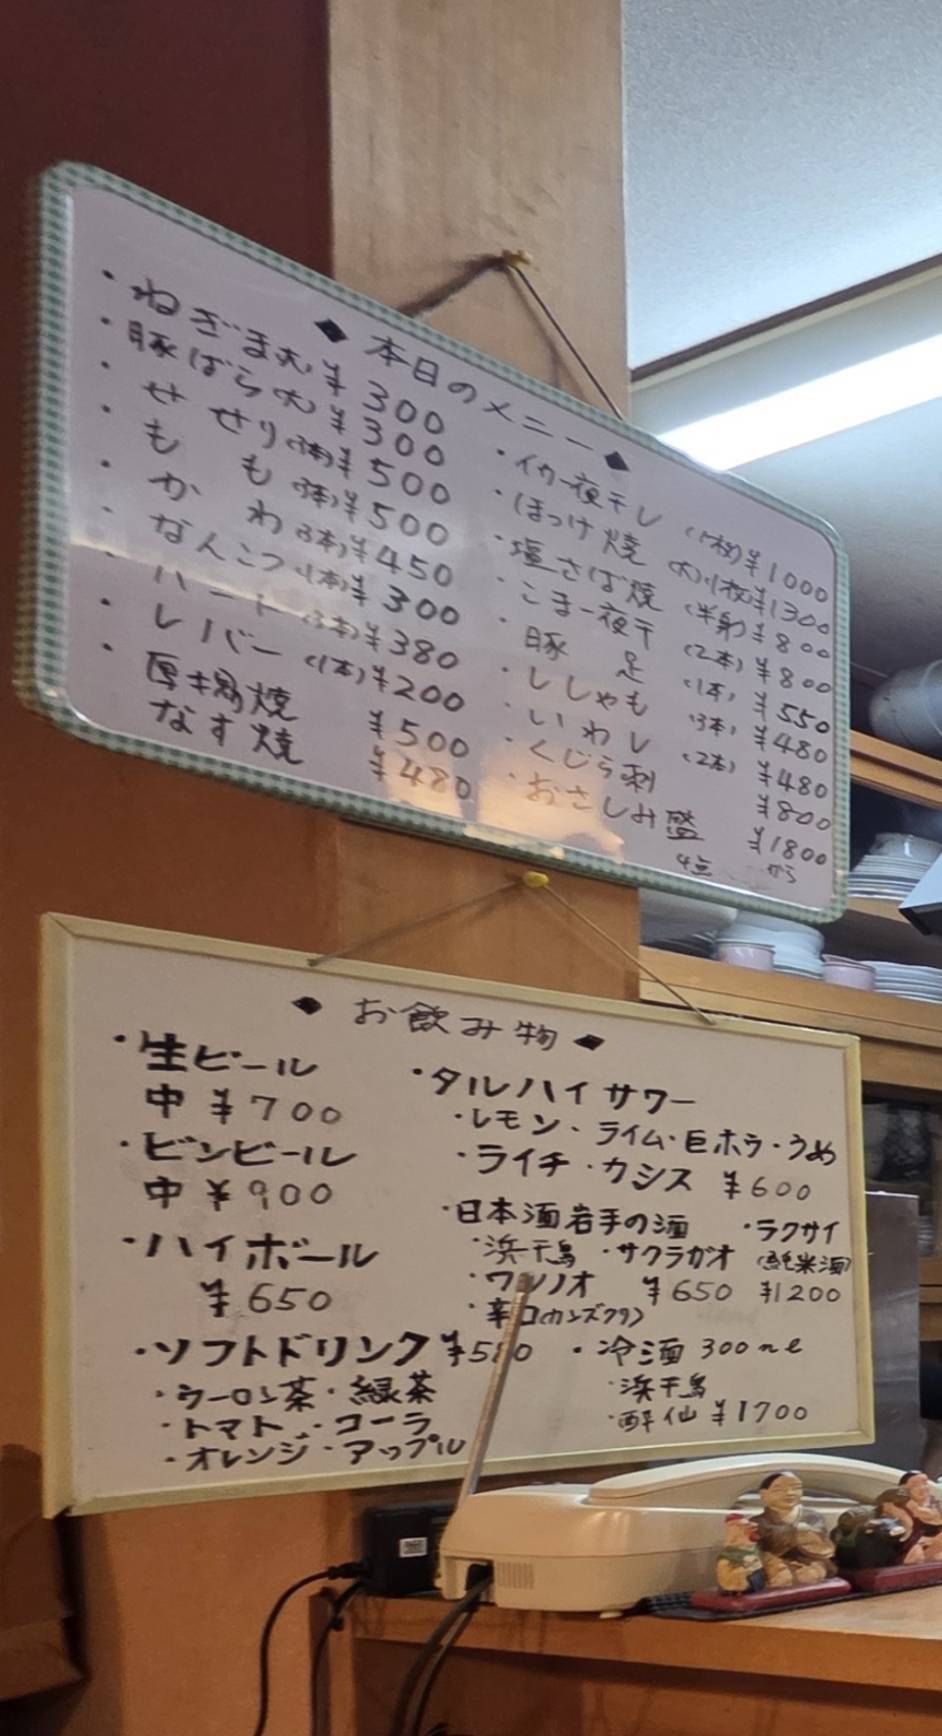 ◆ 本日のメニュー ◆
・ねぎま大 ¥300
・豚ばら大 ¥300
・せせり(3本) ¥500
・もも(3本) ¥500
・かわ(3本) ¥450
・なんこつ(1本) ¥300
・ハート(3本) ¥380
・レバー(1本) ¥200
・厚揚焼 ¥500
なす焼 ¥480
・イカ一夜干し(1枚) ¥1000
・ほっけ焼(大)1枚 ¥1300
・塩さば焼(半身) ¥800
・こまい一夜干(2本) ¥800
・豚足(1本) ¥550
・ししゃも(3本) ¥480
・いわし(2本) ¥480
・くじら刺 ¥800
・おさしみ盛 ¥1800
4点 から
◆ お飲み物 ◆
・生ビール
中 ¥700
・ビンビール
中 ¥900
・ハイボール
¥650
・ソフトドリンク ¥580
・ウーロン茶・緑茶
・トマト・コーラ
・オレンジ・アップル
・タルハイサワー
・レモン・ライム・巨ホウ・うめ
・ライチ・カシス ¥600
・日本酒岩手の酒
・浜千鳥・サクラガオ
・ワシノオ ¥650
・辛口(カンズクリ)
・ラクサイ
(純米酒)
¥1200
・冷酒 300ml
・浜千鳥
・酔仙 ¥1700